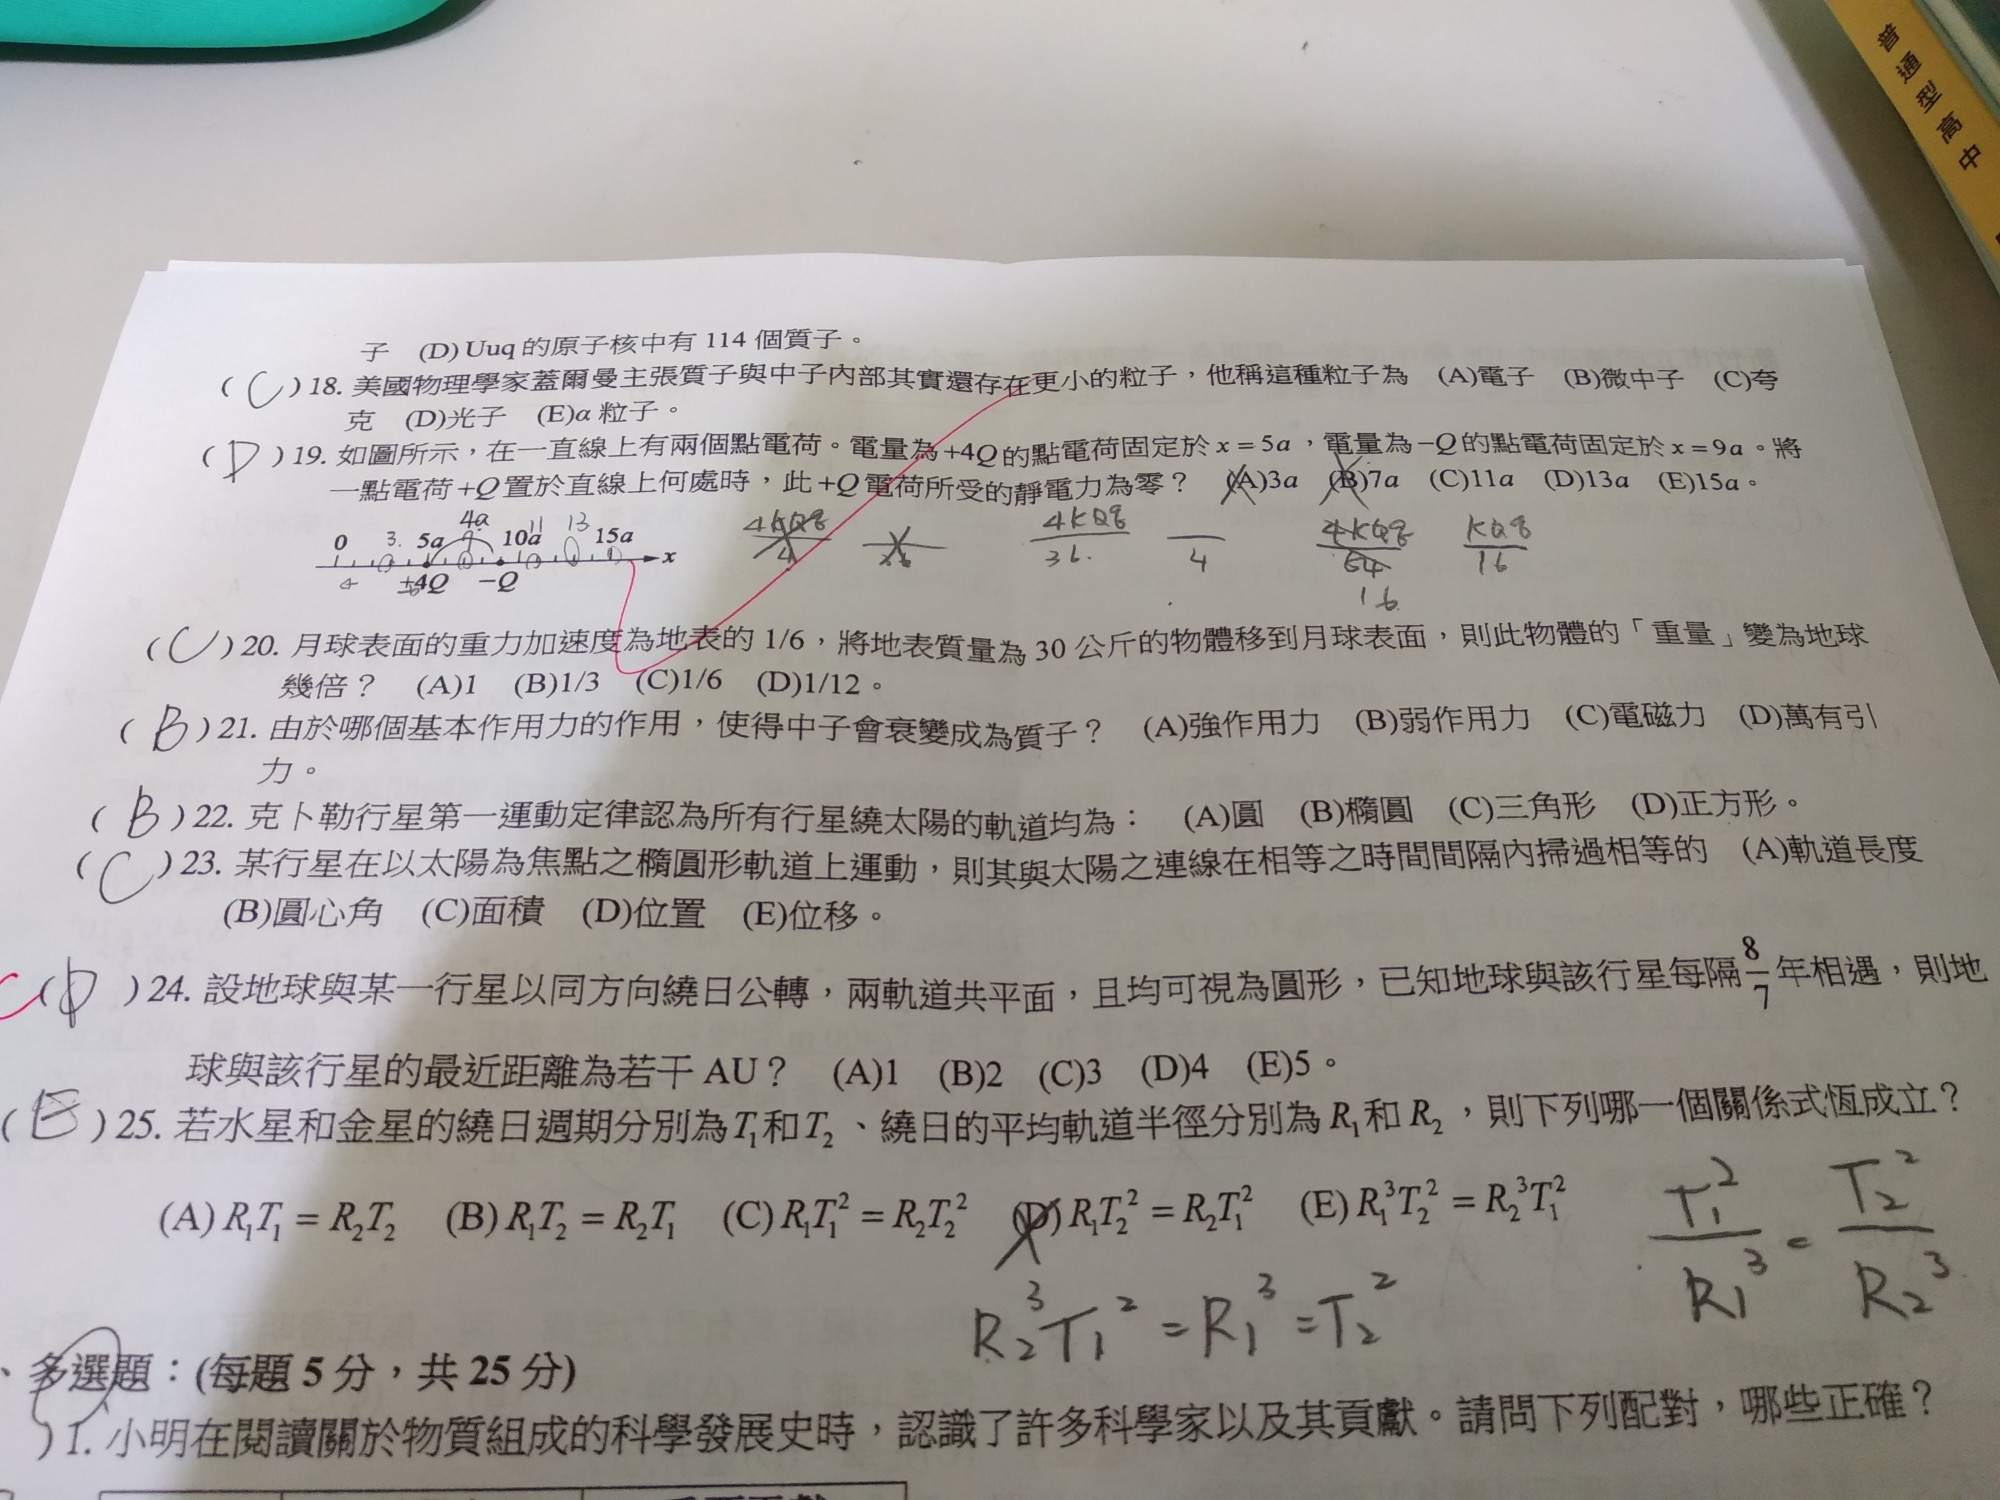 普通型高中
子 (D) Uuq 的原子核中有 114 個質子。
( C ) 18. 美國物理學家蓋爾曼主張質子與中子內部其實還存在更小的粒子，他稱這種粒子為 (A)電子 (B)微中子 (C)夸
克 (D)光子 (E)α 粒子。
( D ) 19. 如圖所示，在一直線上有兩個點電荷。電量為+4Q的點電荷固定於 x = 5a，電量為−Q的點電荷固定於 x = 9a。將
一點電荷+Q置於直線上何處時，此+Q電荷所受的靜電力為零？ (A)3a (B)7a (C)11a (D)13a (E)15a。
4a 11 13
0 3. 5a 10a 15a x
+4Q −Q
4KQq 4KQq 4KQq KQq
4 36. 4 64 16
16
( C ) 20. 月球表面的重力加速度為地表的 1/6，將地表質量為 30 公斤的物體移到月球表面，則此物體的「重量」變為地球
幾倍？ (A)1 (B)1/3 (C)1/6 (D)1/12。
( B ) 21. 由於哪個基本作用力的作用，使得中子會衰變成為質子？ (A)強作用力 (B)弱作用力 (C)電磁力 (D)萬有引
力。
( B ) 22. 克卜勒行星第一運動定律認為所有行星繞太陽的軌道均為： (A)圓 (B)橢圓 (C)三角形 (D)正方形。
( C ) 23. 某行星在以太陽為焦點之橢圓形軌道上運動，則其與太陽之連線在相等之時間間隔內掃過相等的 (A)軌道長度
(B)圓心角 (C)面積 (D)位置 (E)位移。
( D ) 24. 設地球與某一行星以同方向繞日公轉，兩軌道共平面，且均可視為圓形，已知地球與該行星每隔 8/7 年相遇，則地
球與該行星的最近距離為若干 AU？ (A)1 (B)2 (C)3 (D)4 (E)5。
( E ) 25. 若水星和金星的繞日週期分別為 T₁和T₂、繞日的平均軌道半徑分別為 R₁和 R₂，則下列哪一個關係式恆成立？
(A) R₁T₁ = R₂T₂ (B) R₁T₂ = R₂T₁ (C) R₁T₁² = R₂T₂² (D) R₁T₂² = R₂T₁² (E) R₁³T₂² = R₂³T₁²
T₁²/R₁³ = T₂²/R₂³
R₂³T₁² = R₁³ = T₂²
、多選題：(每題 5 分，共 25 分)
) 1. 小明在閱讀關於物質組成的科學發展史時，認識了許多科學家以及其貢獻。請問下列配對，哪些正確？